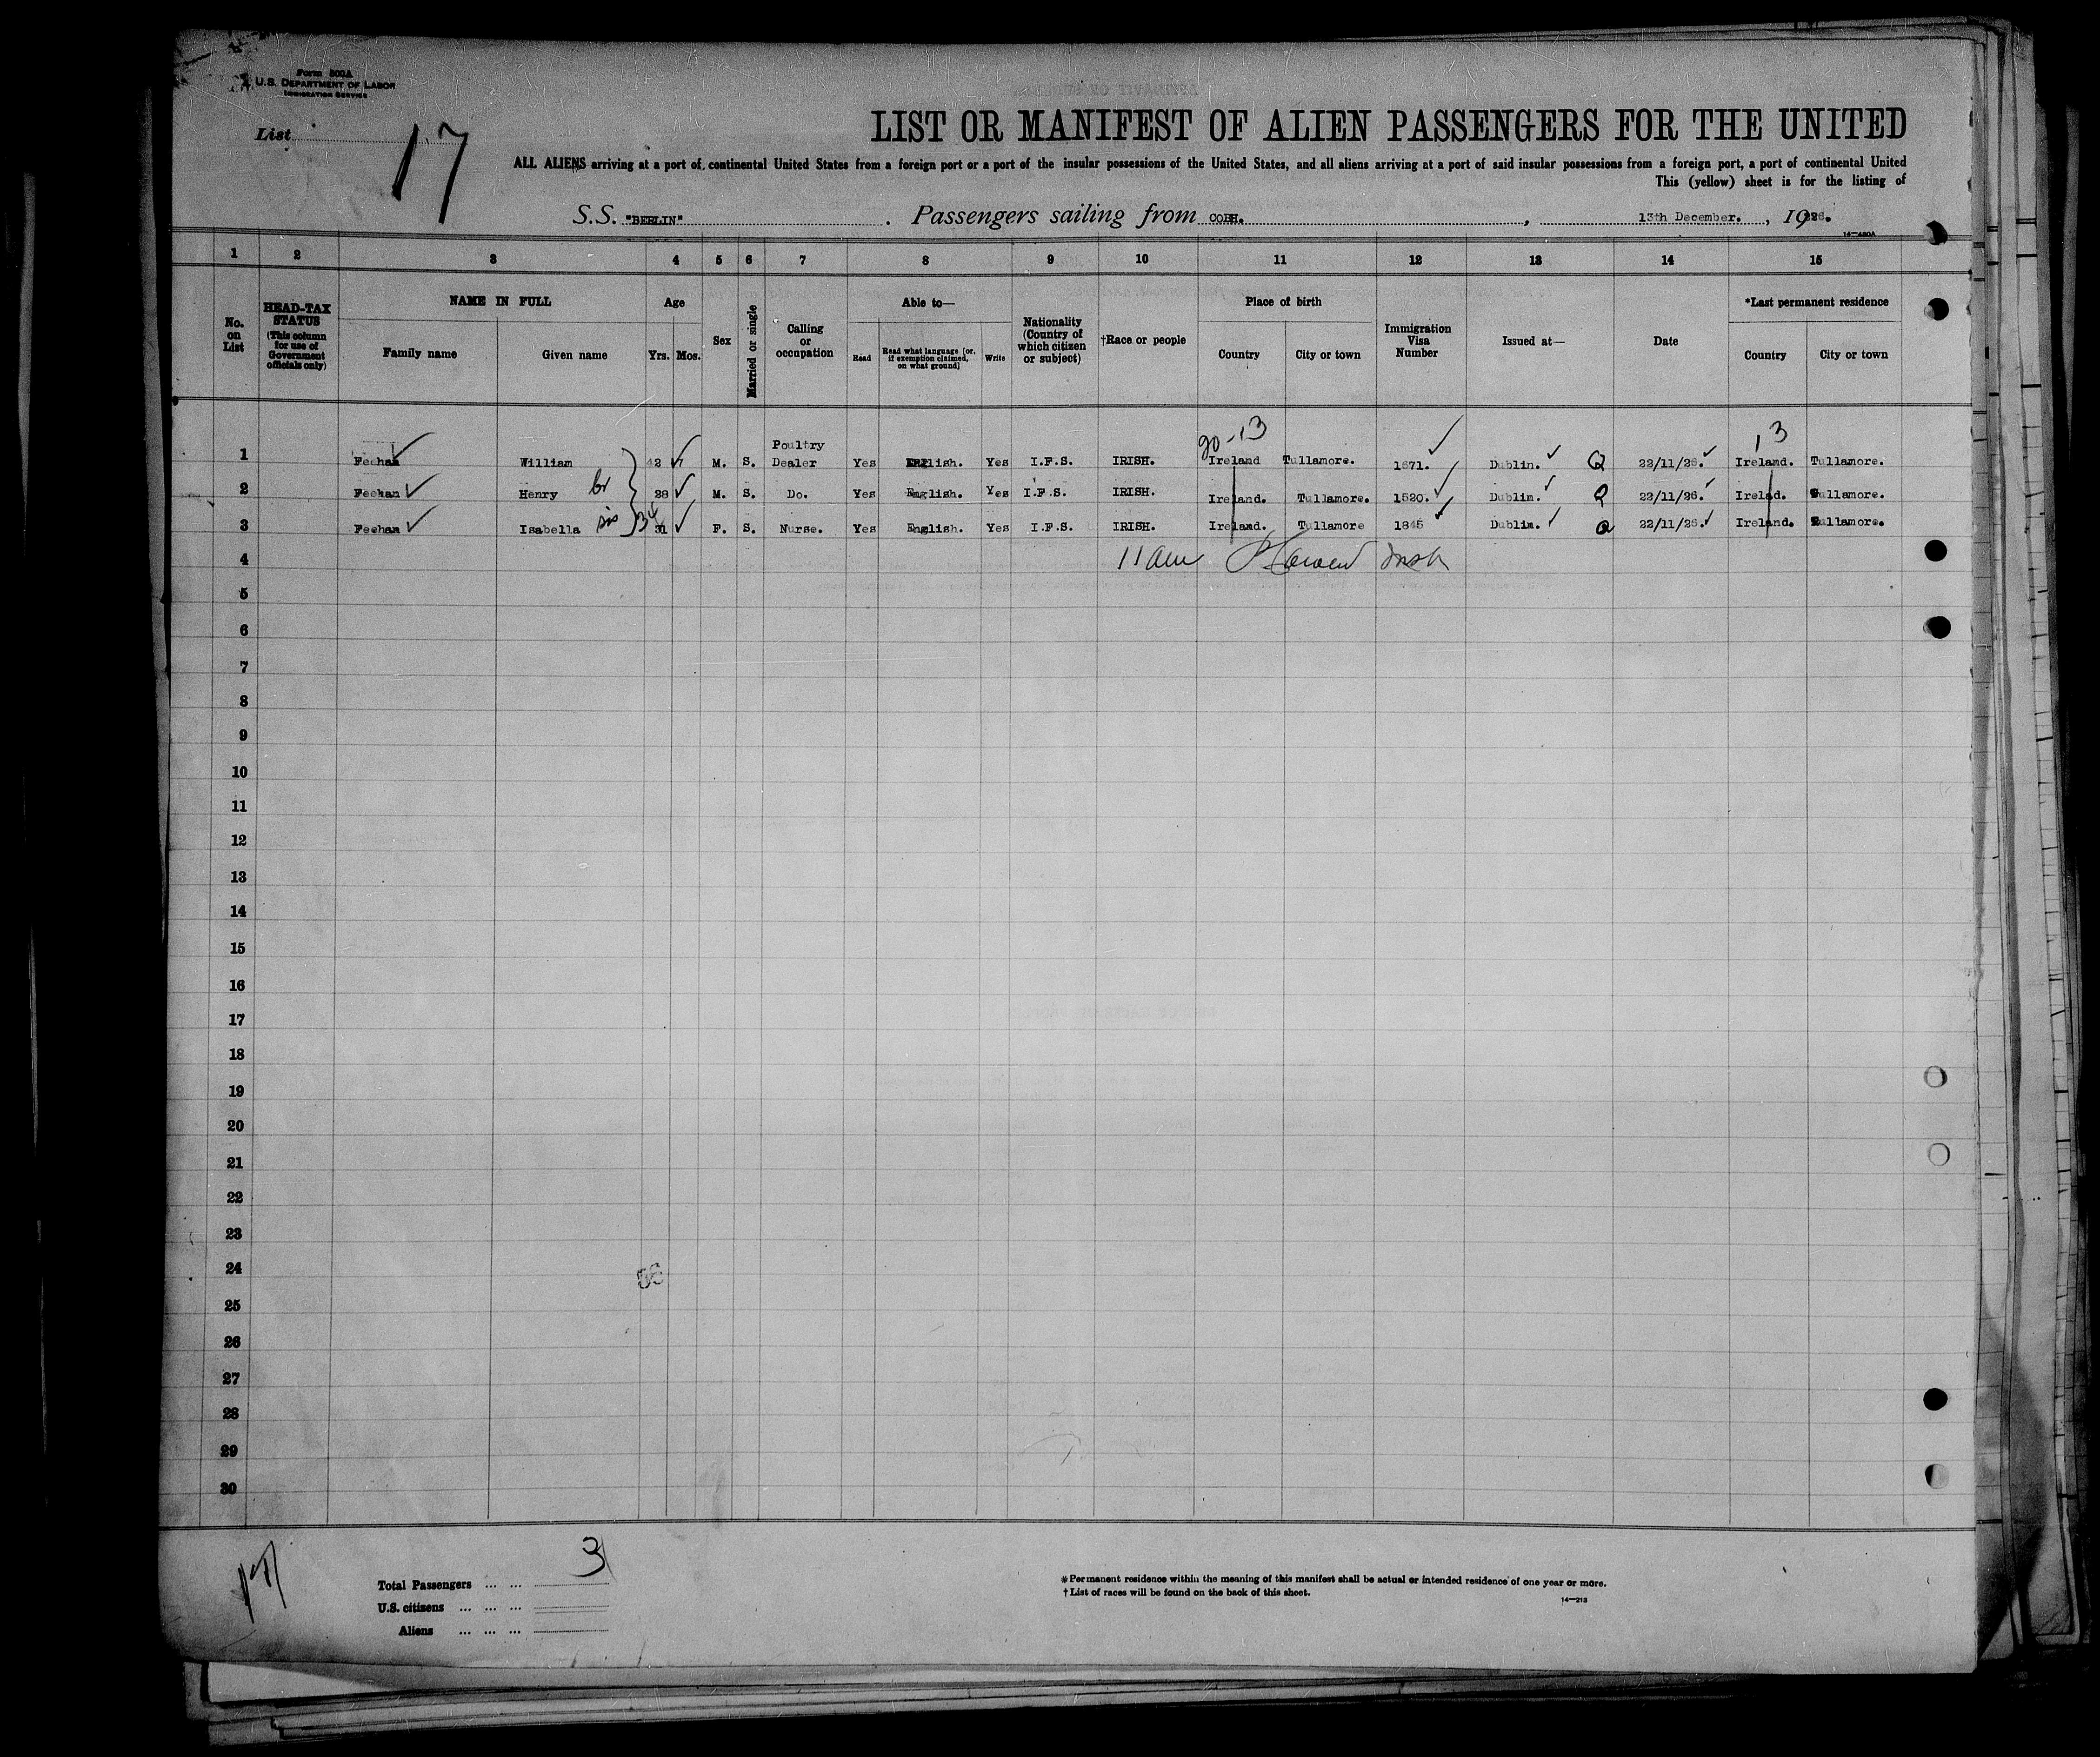 Form 500A
U.S. DEPARTMENT OF LABOR
IMMIGRATION SERVICE
List 17
LIST OR MANIFEST OF ALIEN PASSENGERS FOR THE UNITED
ALL ALIENS arriving at a port of continental United States from a foreign port or a port of the insular possessions of the United States, and all aliens arriving at a port of said insular possessions from a foreign port, a port of continental United
This (yellow) sheet is for the listing of
S.S. "BERLIN". Passengers sailing from COBH. , 13th December. , 1926.
14—480A
1 2 3 4 5 6 7 8 9 10 11 12 13 14 15
No. on List
HEAD-TAX STATUS (This column for use of Government officials only)
NAME IN FULL
Family name Given name
Age
Yrs. Mos.
Sex
Married or single
Calling or occupation
Able to—
Read Read what language [or, if exemption claimed, on what ground] Write
Nationality (Country of which citizen or subject)
†Race or people
Place of birth
Country City or town
Immigration Visa Number
Issued at—
Date
*Last permanent residence
Country City or town
90-13 13
1 Feehan William 42 7 M. S. Poultry Dealer Yes English. Yes I.F.S. IRISH. Ireland Tullamore. 1671. Dublin. Q 22/11/26. Ireland. Tullamore.
2 Feehan Henry br 28 M. S. Do. Yes English. Yes I.F.S. IRISH. Ireland. Tullamore. 1520. Dublin. Q 22/11/26. Irelad. Tullamore.
3 Feehan Isabella sis 34 31 F. S. Nurse. Yes English. Yes I.F.S. IRISH. Ireland. Tullamore 1845 Dublin. Q 22/11/26. Ireland. Tullamore.
4 11am
5
6
7
8
9
10
11
12
13
14
15
16
17
18
19
20
21
22
23
24
25
26
27
28
29
30
3
Total Passengers ... ...
U.S. citizens ... ... ...
Aliens ... ... ...
*Permanent residence within the meaning of this manifest shall be actual or intended residence of one year or more.
†List of races will be found on the back of this sheet.
14—213